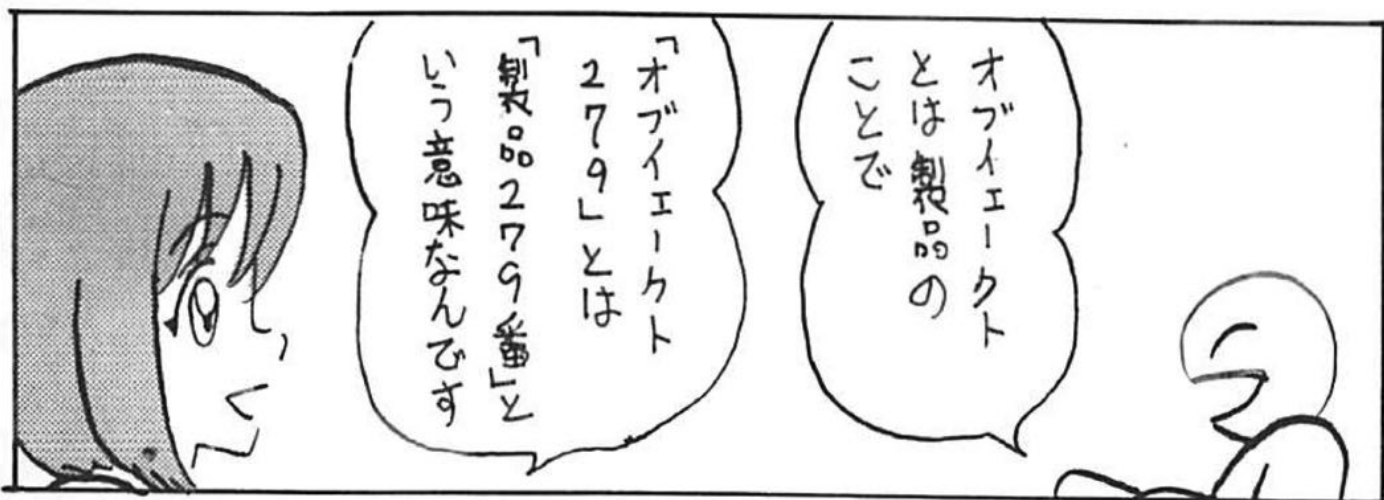 オブイェークト
とは製品の
ことで
「オブイェークト
279」とは
「製品279番」と
いう意味なんです